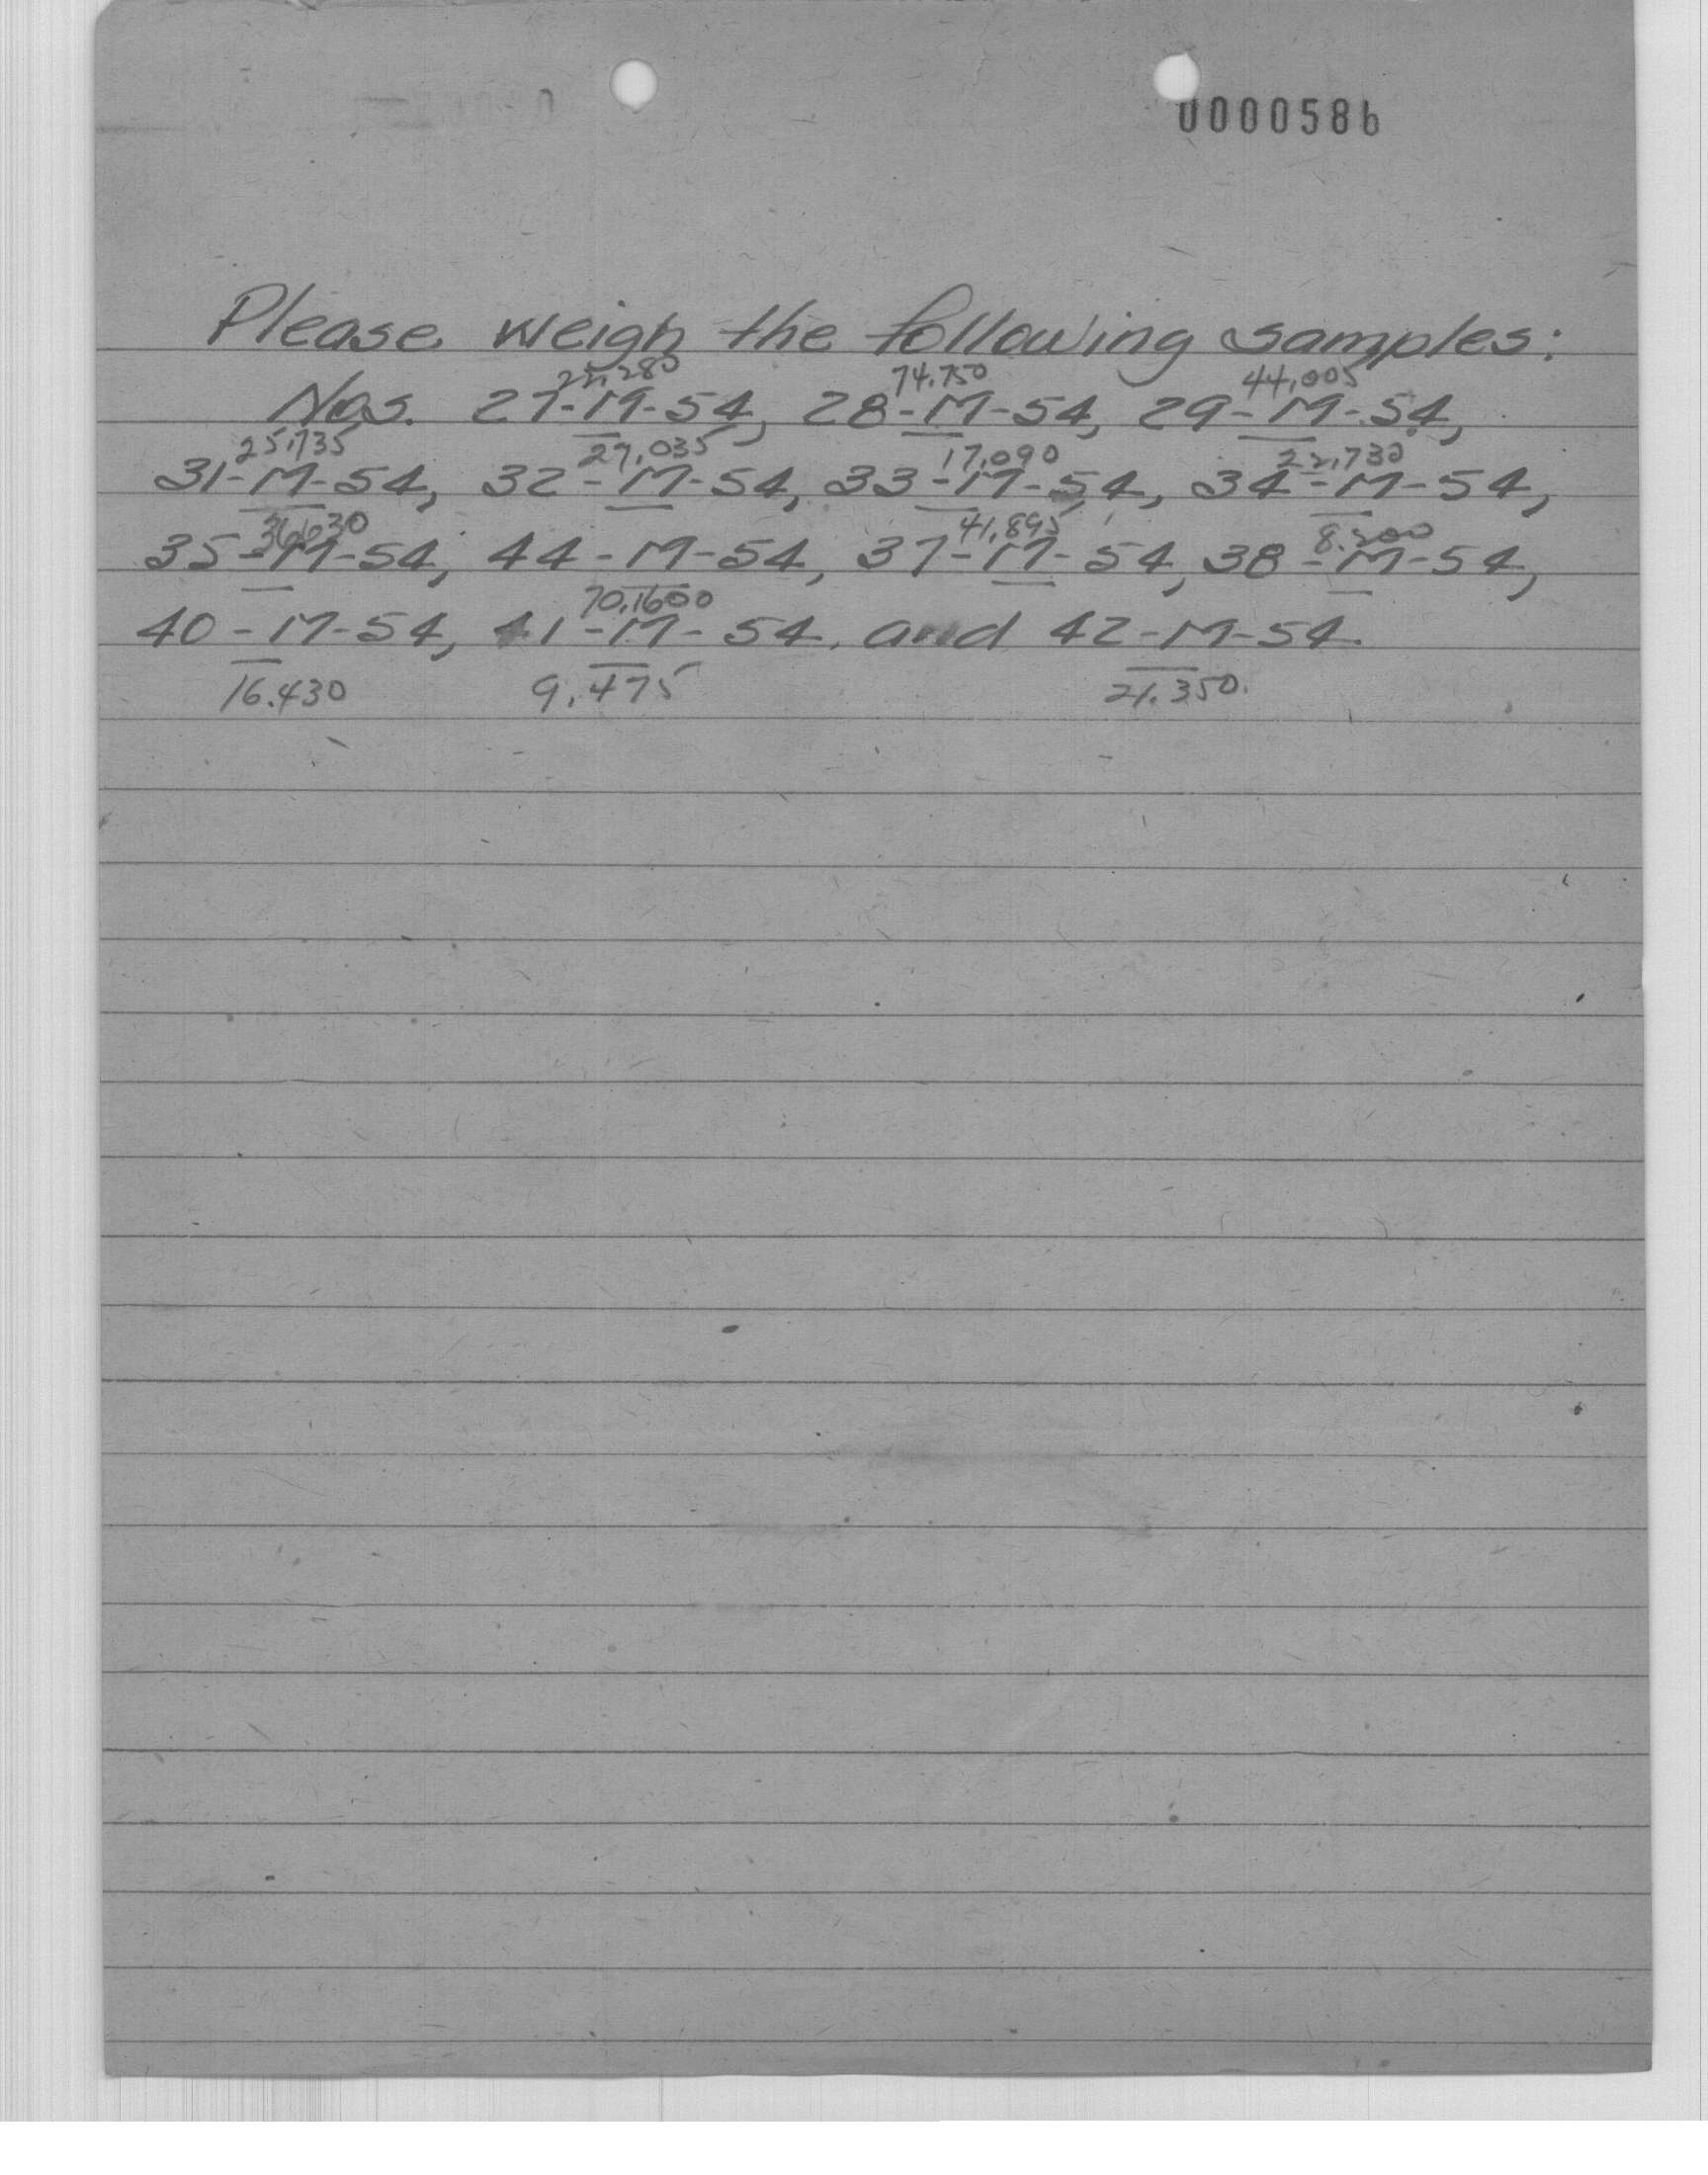 0000586
Please weigh the following samples:
22,280 74,750 44,005
Nos. 27-M-54, 28-M-54, 29-M-54,
25,735 27,035 17,090 22,730
31-M-54, 32-M-54, 33-M-54, 34-M-54,
41,895 8.200
35-M-54, 44-M-54, 37-M-54, 38-M-54,
70,1600
40-M-54, 41-M-54, and 42-M-54.
16.430 9,475 21.350.